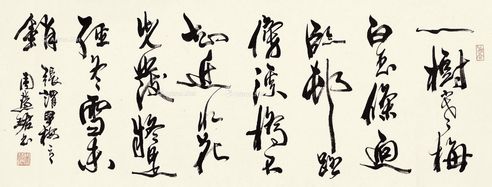 一樹寒梅
白玉條迥
臨村路
傍溪橋不
知近水花
先發疑是
經冬雪未
銷
張謂早梅
周慧珺書